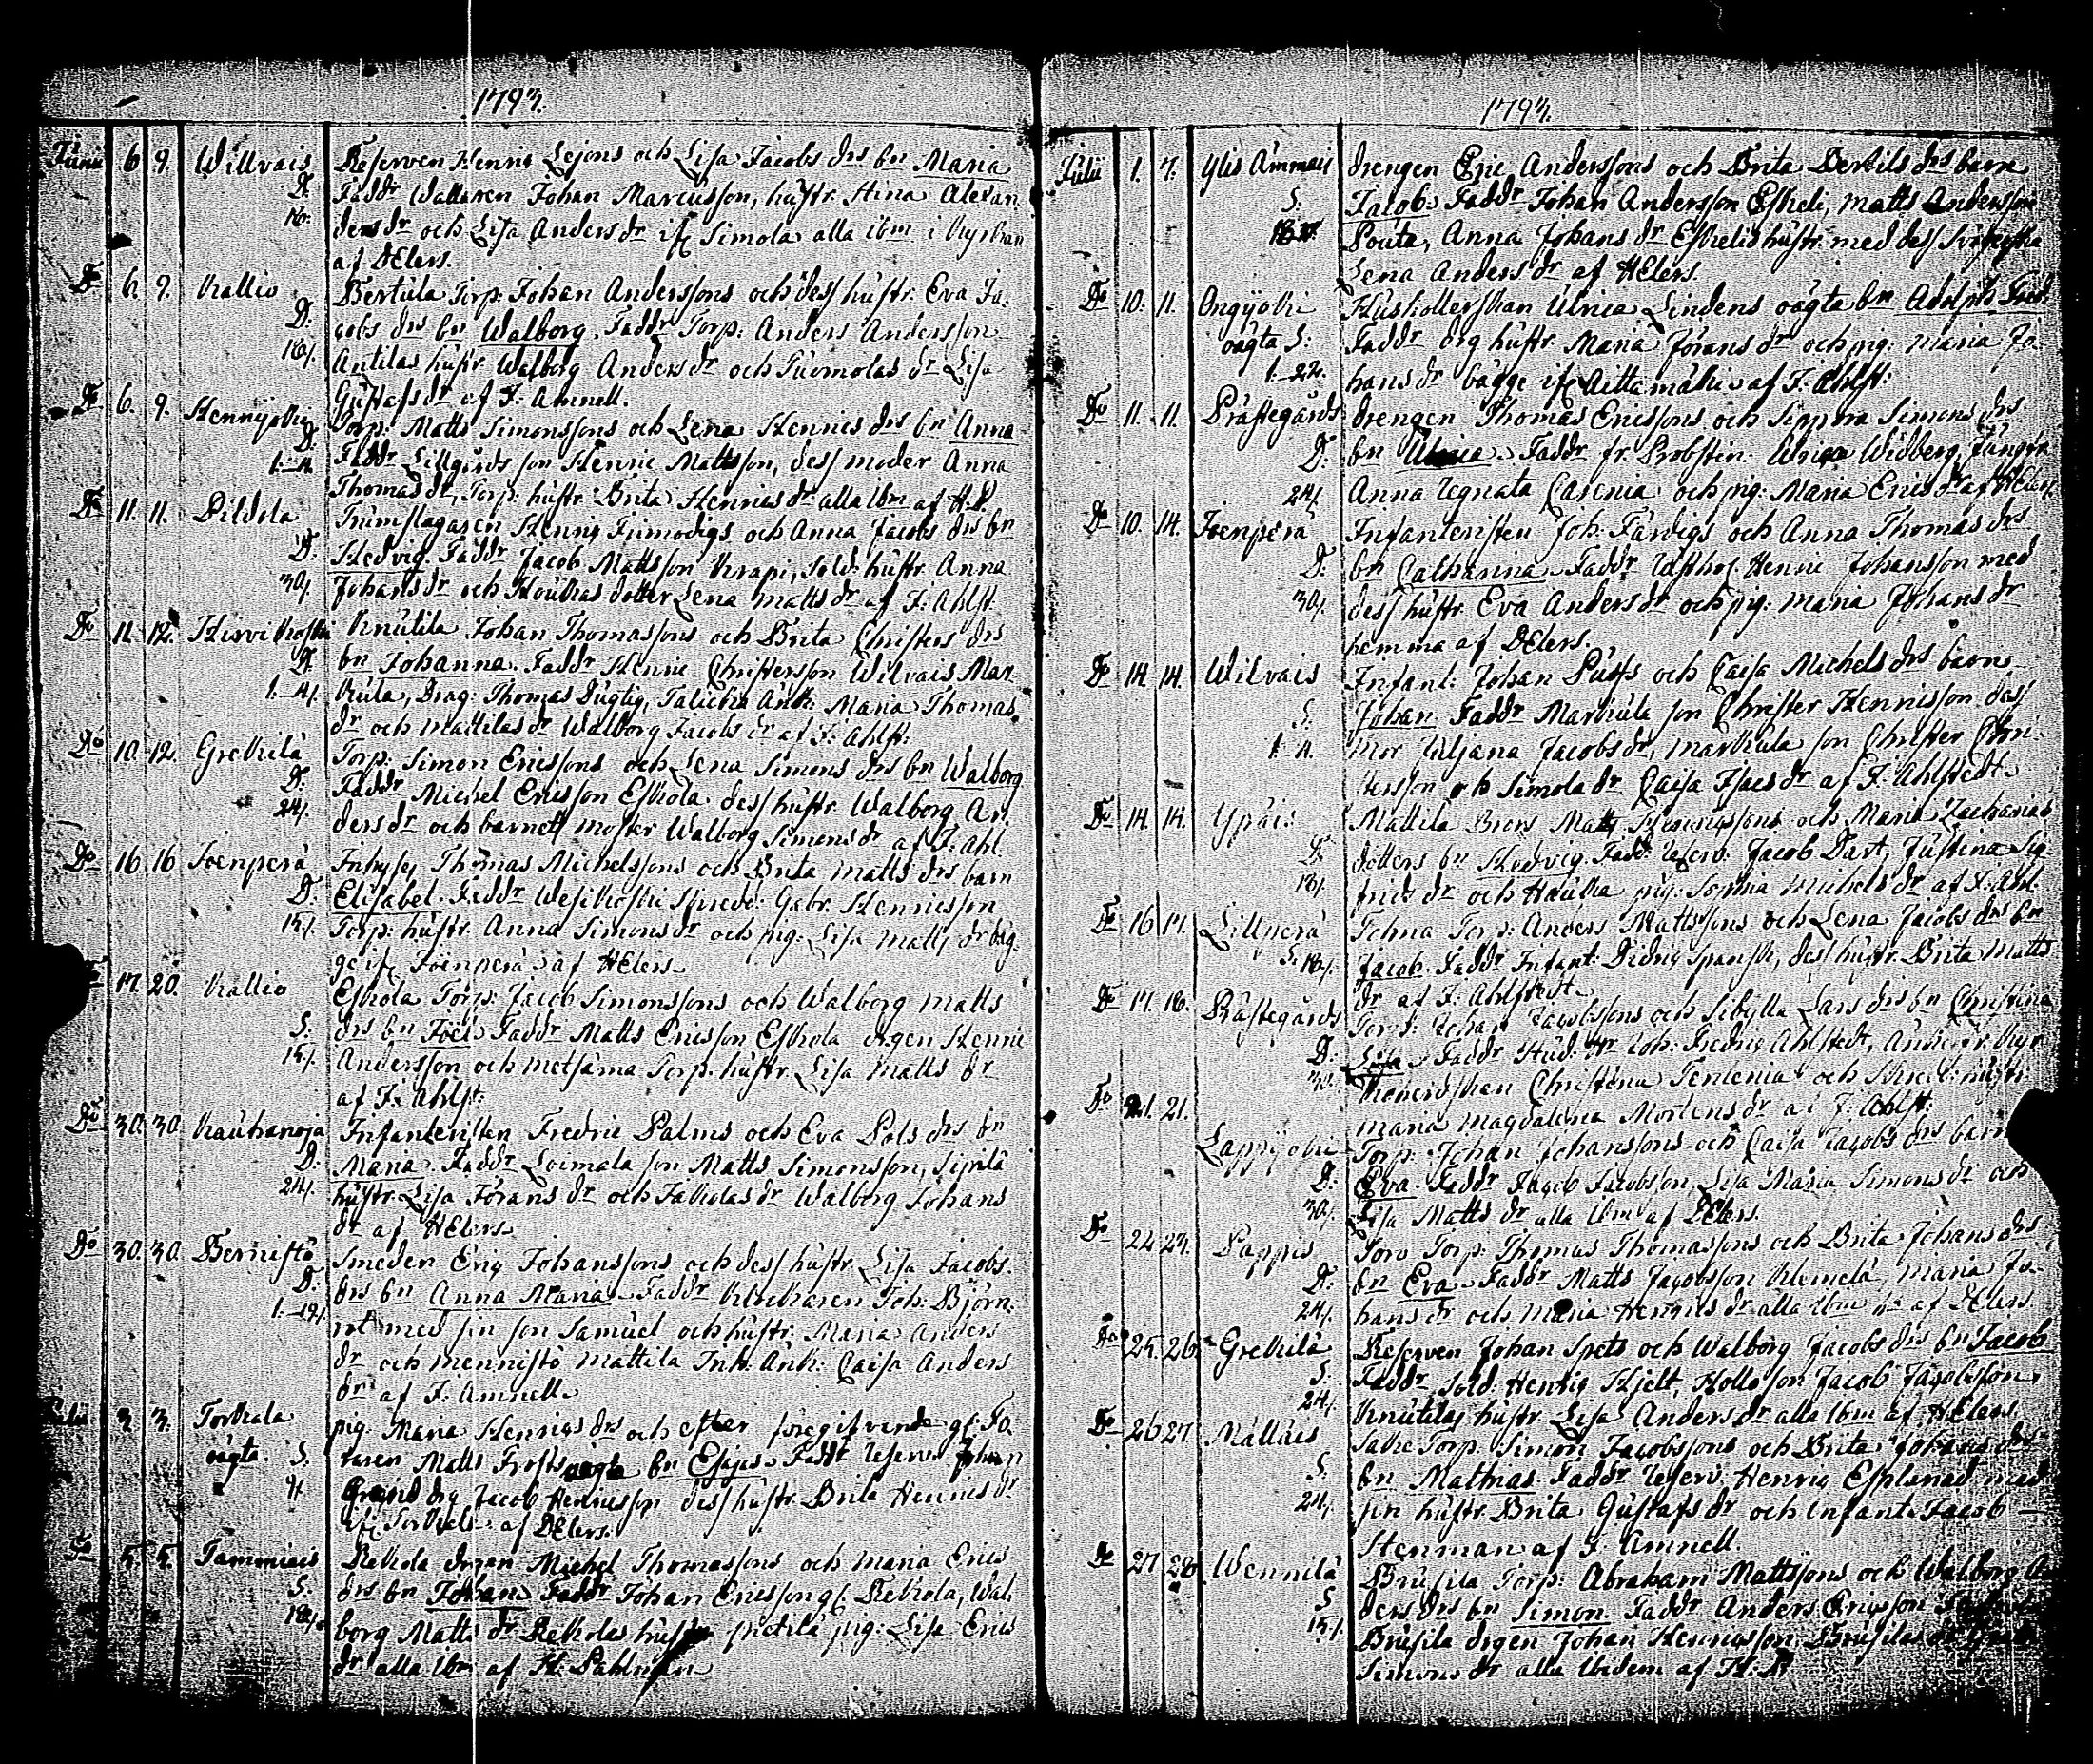 1793.
Junii 6 9. Willvais Reserven Henric Lejons och Lisa Jacobs drs bn Maria
D. Faddr Wallaren Johan Marcusson, hustr. Stina Alexan
ders dr och Lisa Anders dr Simola alla ibm i
af DElers.
Do 6. 9. Kallio Bertula Torp: Johan Anderssons och dess hustr. Eva Ja-
D. cobs drs bn Walborg. Faddr Torp: Anders Andersson
Antilas hustr. Walborg Anders dr och Tuomolas dr Lisa
Gustafs dr af J. Amnell.
Do 6. 9. Torp: Matts Simonssons och Lena Henrics drs bn Anna
D. Faddr Lillgårds son Henric Mattsson, dess moder Anna
Thomas dr, Torp: hustr. Brita Henrics dr alla ibm af H.P.
Do 11. 11. Pildola Trumslagaren Henric Finmodigs och Anna Jacobs drs bn
D. Hedvig. Faddr Jacob Mattsson Krapi, Sold: hustr. Anna
30/. Johans dr och Houkas dotter Lena Matts dr af J. Ahlst.
Do 11. 12. Hirvikoski Knutila Johan Thomassons och Brita Christers drs
D. bn Johanna. Faddr Henric Christersson Wilvais Mar-
kula, Drag: Thomas Dugtig, Änk: Maria Thomas
dr och Mattilas dr Walborg Jacobs dr af J. Ahlst:
Do 10. 12. Grekilä Torp: Simon Ericssons och Lena Simons drs bn Walborg
D. Faddr Michel Ericsson Eskola dess hustr. Walborg An-
24/. ders dr och barnets moster Walborg Simons dr af J. Ahl.
Do 16 16 Joenperä Inhyses Thomas Michelssons och Brita Matts drs barn
D. Elisabet. Faddr Wesikoski Gabr. Henricsson
15/. Torp: hustr. Anna Simons dr och pig: Lisa Matts dr båg-
ge Joenperä af HElers
17. 20. Kallio Eskola Torp: Jacob Simonssons och Walborg Matts
S. drs bn Faddr Matts Ericsson Eskola drgen Henric
15/. Andersson och Metsäma Torp. hustr. Lisa Matts dr
af J. Ahlst:
Do 30. 30. Kauhanoja Infanteristen Fredric Palms och Eva Pols drs bn
D. Maria. Faddr Loimala son Matts Simonsson, Sipilä
24/. hustr. Lisa Jörans dr och Jakolas dr Walborg Johans
dr af HElers
Do 30. 30. Bernistö Smeden Eric Johanssons och dess hustr. Lisa Jacobs
D. drs bn Anna Maria. Faddr Klockaren Joh: Björn-
med sin son Samuel och hustr. Maria Anders
dr och Mennistö Mattila Inh. Änk: Caisa Anders
dr af J. Amnell
Julii 3 3. Torkala pig. Maria Henrics drs och efter föregifvande gl. To-
oägta. S. raren Matts Frosts oägta bn Esajas. Faddr Reserv. Johan
drg Jacob Henricsson dess hustr. Brita Henrics dr
Torkala af DElers.
Do 5. 5. Tammiais Rekola drgen Michel Thomassons och Maria Erics
S. drs bn Johan. Faddr Johan Ericsson gl. Rekola, Wal-
18/. borg Matts dr Rekolas hustr. pig: Lisa Erics
dr alla ibm af H: Pahlman
1793.
Julii 1. 7. Ylis Ämmais drengen Eric Anderssons och Brita Bertils drs barn
S. Jacob. Faddr Johan Andersson Eskeli, Matts Andersson
Pouta, Anna Johans dr Eskelis hustr. med dess
Lena Anders dr af HElers.
Do 10. 11. Ongijoki Hushållerskan Ulrica Lindens oägta bn Adolph Fred.
oägta S: Faddr drg hustr. Maria Jörans dr och pig. Maria Jo-
1.-22. hans dr bägge Aittamäki af J. Ahlst:
Do 11. 11. Prästegårds drengen Thomas Ericssons och Sippora Simons drs
D. bn Ulrica. Faddr fr. Probstin. Ulrica Widberg, Jungfr.
24/. Anna Regnata Casenia och pig. Maria Erics dr af HElers
Do 10. 14. Joenperä Infanteristen Joh. Färdigs och Anna Thomas drs
D. bn Catharina. Faddr Henric Johansson med
30/. dess hustr. Eva Anders dr och pig: Maria Johans dr
hemma af DElers.
Do 14. 14. Wilvais Infant: Johan Pusts och Caisa Michels drs barn
S. Johan. Faddr Markula son Christer Henricsson dess
mor Juljana Jacobs dr, Markkula son Christer Chri-
stersson och Simola dr Caisa Isacs dr af J. Ahlstedt.
Do 14. 14. Ypäis Mattila Brors Matts Henricssons och Maria Zacharias
D. dotters bn Hedvig. Fadd: Reserv. Jacob Dart, Justina Sig-
18/. frids dr och Haukka pig: Sophia Michels dr af J. Ahl.
Do 16 17. Lillperä Torp: Anders Mattssons och Lena Jacobs drs bn
S. 18/. Jacob. Faddr Infant: Didric Spansk, dess hustr. Brita Matts
dr af J. Ahlstedt
Do 17. 18. Prästegårds Torp: Johan Jacobssons och Sibylla Lars drs bn Christina
D. Lisa. Faddr Stud: Hr Joh: Fredric Ahlstedt, Änke fr. Kyr-
koherdskan Christina Tenlenia och hustr.
Maria Magdalena Mortens dr af J: Ahlst:
Do 21. 21.
Lappijoki Torp: Johan Johanssons och Caisa Jacobs drs barn
D. Eva. Faddr Jacob Jacobsson Lisa Maria Simons dr och
30/. Lisa Matts dr alla ibm af DElers.
Do 24 24. Pappis Torp: Thomas Thomassons och Brita Johans drs
D. bn Eva. Faddr Matts Jacobsson Klemelä, Maria Jo-
24/. hans dr och Maria Henrics dr alla ibm af DElers.
Do 25. 26. Grekilä Reserven Johan Spets och Walborg Jacobs drs bn Jacob
S. Faddr Sold: Henric Hjelt, Hollo son Jacob Jacobsson,
24/. Knutilas hustr. Lisa Anders dr alla ibm af HElers.
Do 26 27. Mällais Torp. Simon Jacobssons och Brita Johans drs
S. bn Mathias Faddr Reserv. Henric Esplanad med
24/. sin hustr. Brita Gustafs dr och Infant. Jacob
Stenman af J. Amnell.
Do 27 28 Wennilä Brusila Torp: Abraham Mattssons och Walborg An
S ders drs bn Simon. Faddr Anders Ericsson
15/. Brusila drgen Johan Henricsson, Brusilas
Simons dr alla ibidem af H. P.